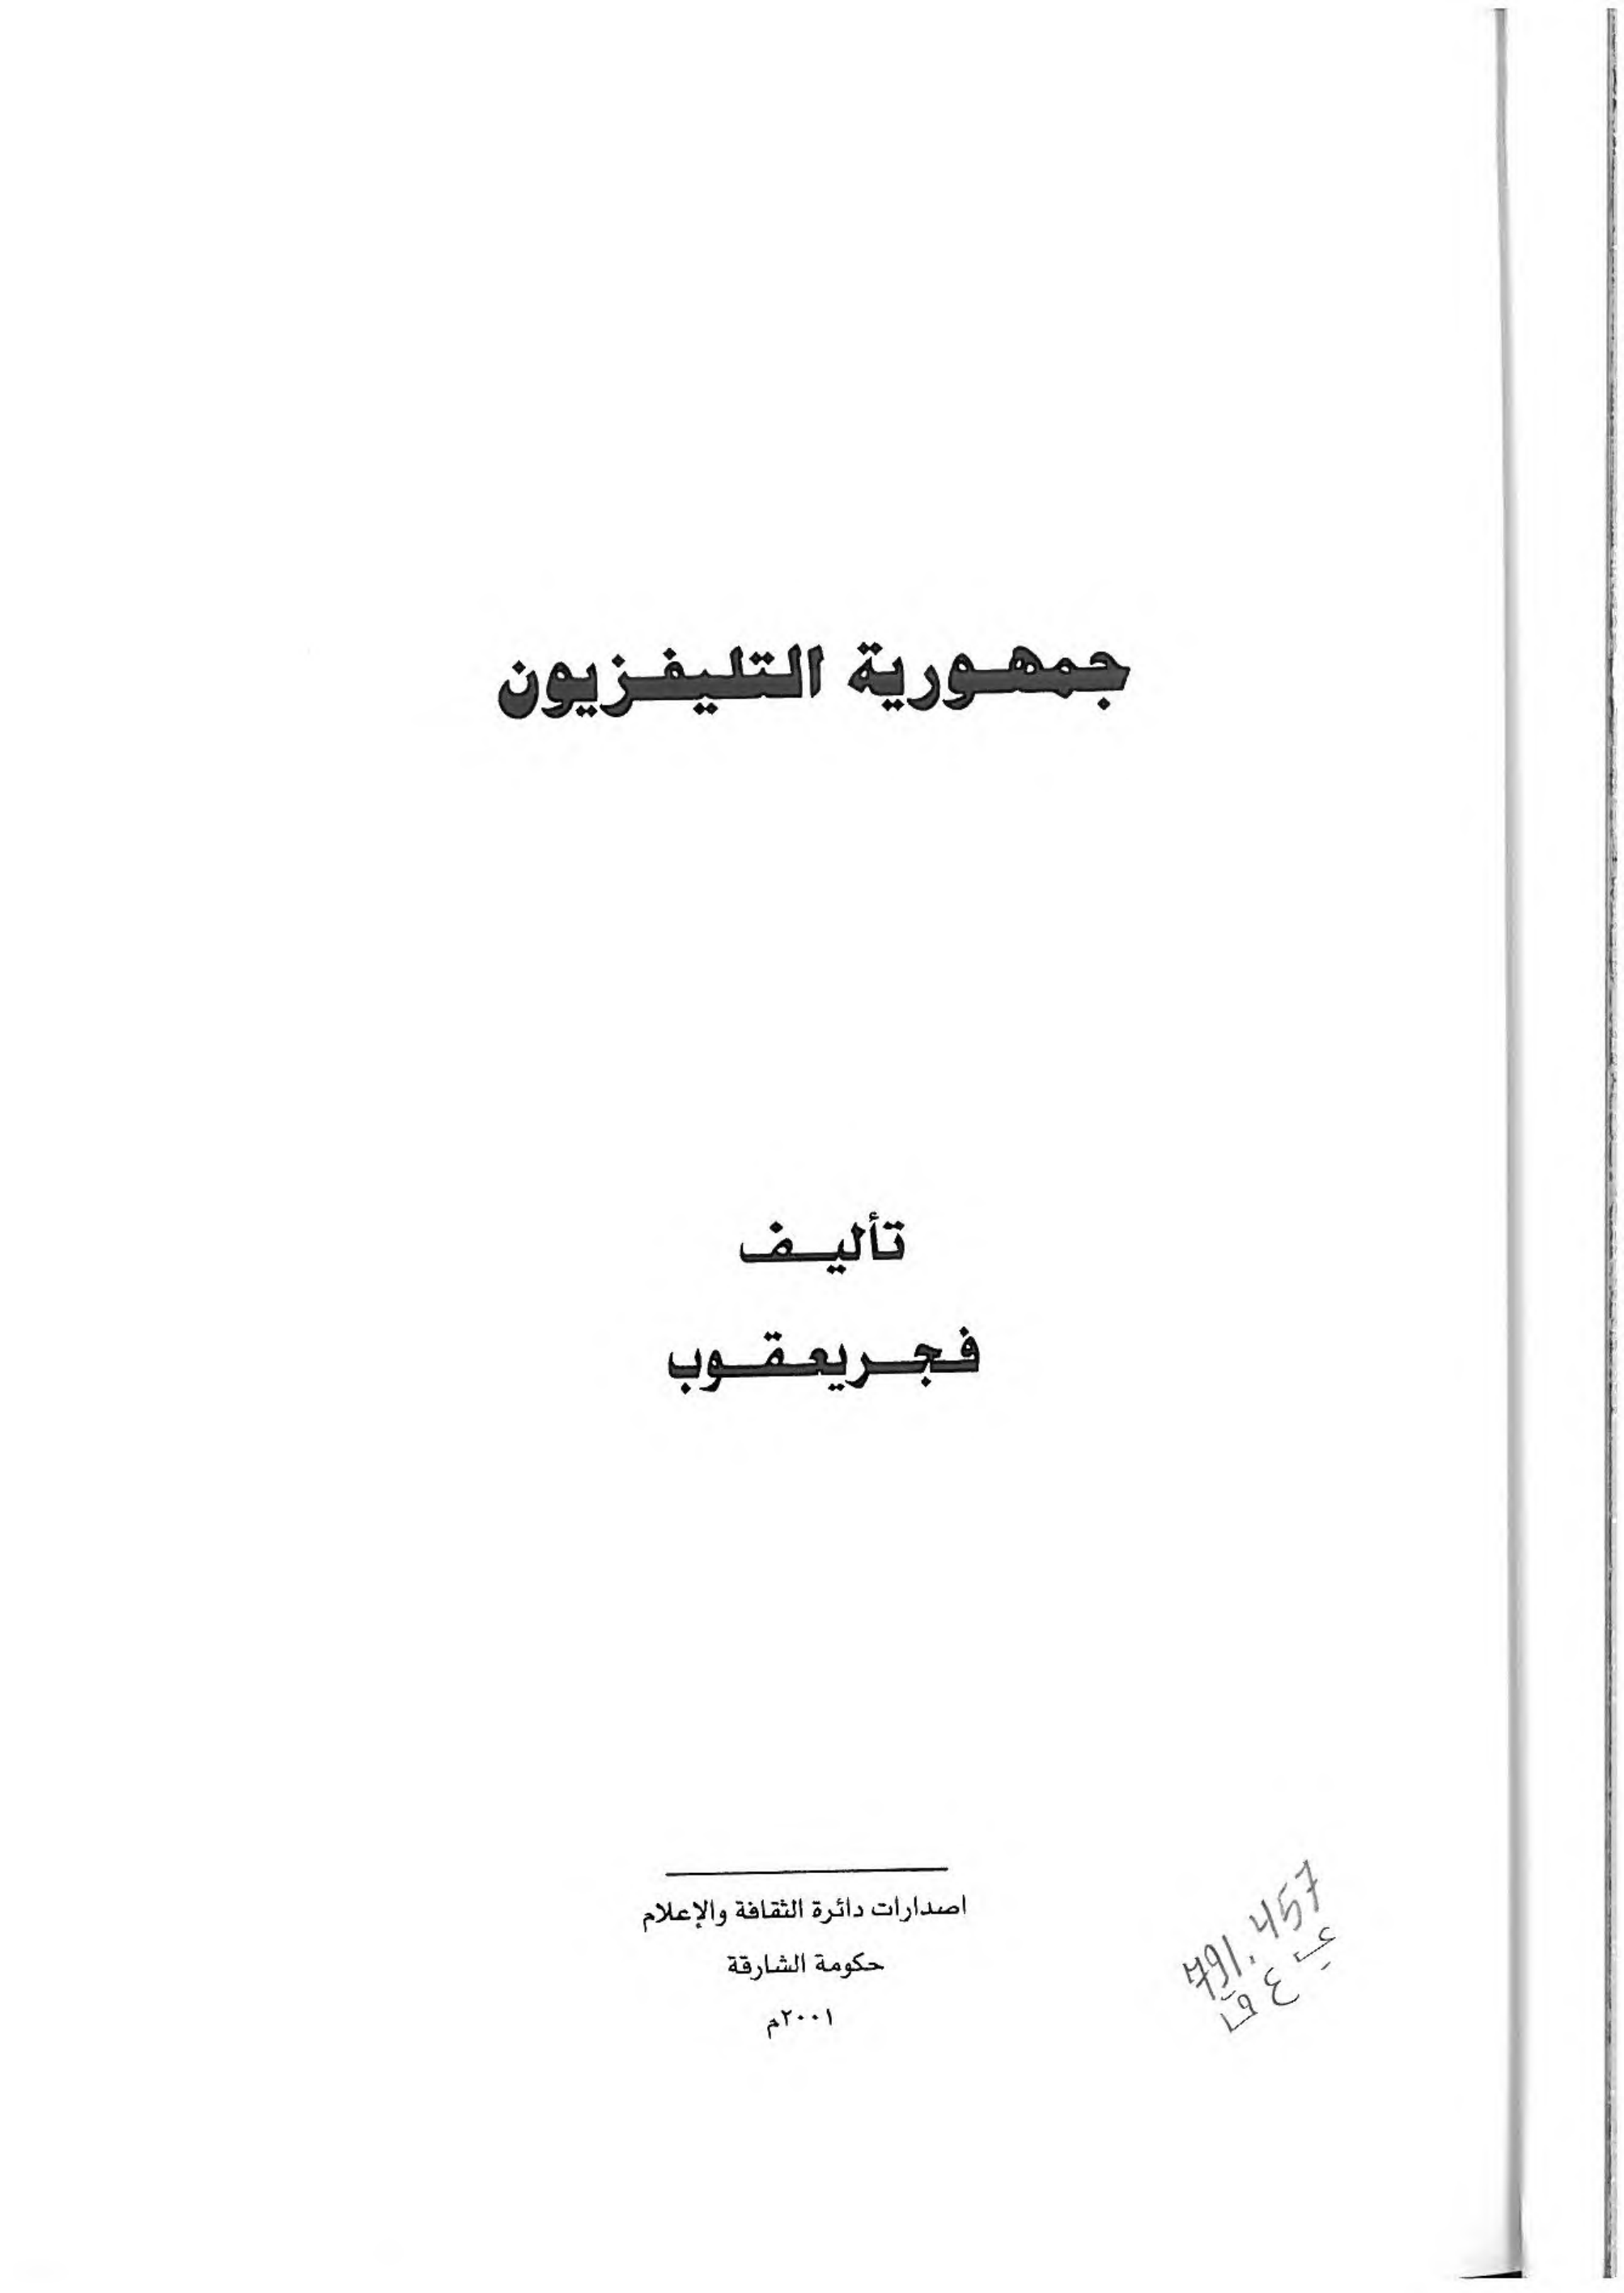 جمهورية التليفزيون
تأليف
فجر يعقوب
اصدارات دائرة الثقافة والإعلام
حكومة الشارقة
٢٠٠١م
791.457
ي ع ف